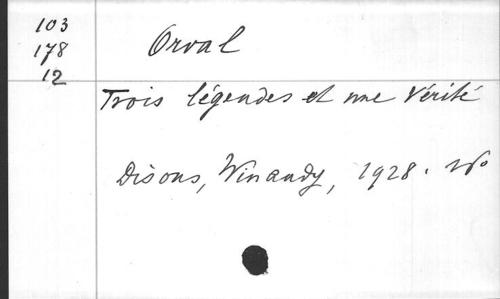 103
178
12
Orval
Trois légendes et une Vérité
Disons, Winandy, 1928. in 8º